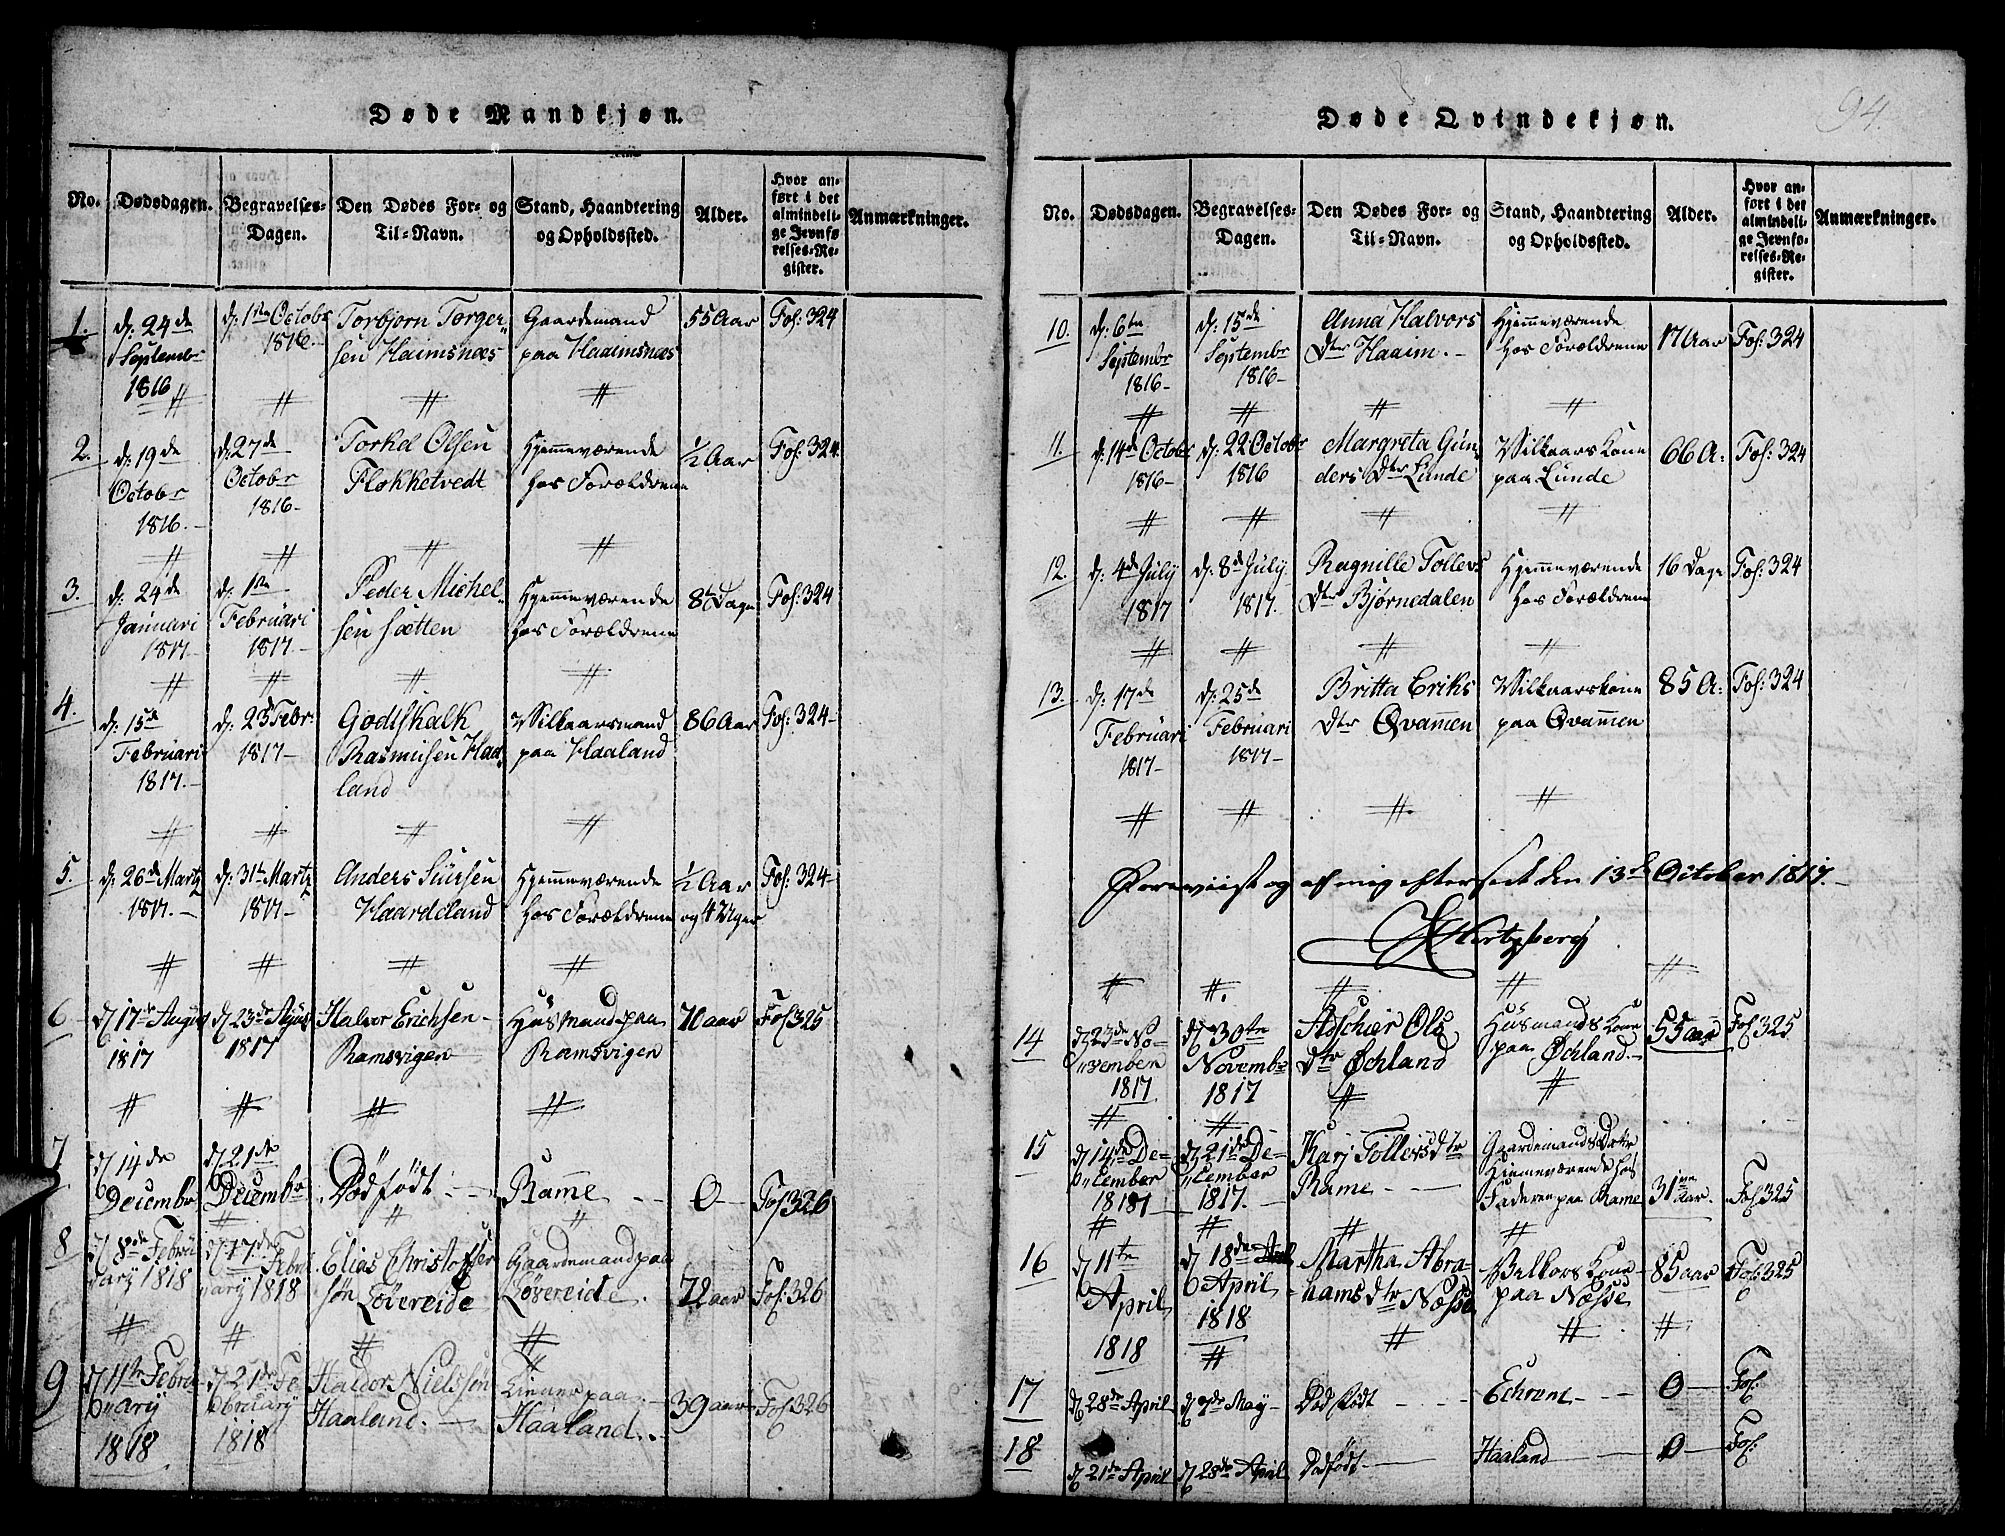 Døde Mandkjøn.
No.
Dødsdagen.
Begravelses-
Dagen.
Den Dødes For- og
Til-Navn.
Stand, Haandtering
og Opholdssted.
Alder.
Hvor an-
ført i det
almindeli-
ge Jevnfø-
relses-Re-
gister.
Anmærkninger.
1.
d: 24de
Septembr
1816
d: 1ste Octobr
1816.
Torbjørn Torger-
sen Haimsnæs
Gaardemand
paa Haaimsnæs
55 Aar
Fol: 324
2.
d: 19de
Octobr
1816.
d: 27de
Octobr
1816-
Torkel Olsen
Flokketvedt
Hjemmeværende
hos Forældrene
½ Aar
Fol: 324
3.
d: 24de
Januari
1817.-
d: 1ste
Februari
1817.-
Peder Michel-
sen Sætten
Hjemmeværende
hos Forældrene
8te Dage
Fol: 324
4.
d: 15de
Februari
1817.-
d: 23 Febr:
1817-
Godtskalk
Rasmusen Haa-
land
Vilkaarsmand
paa Haaland
86 Aar
Fol: 324-
5.
d: 26de Martz
1817.-
d: 31te Martz
1817-
Anders Siursen
Haardeland
Hjemmeværende
hos Forældrene
½ Aar
og 4 Uger
Fol: 324-
6
d 17de August
1817
d 23de August
1817
Halvor Erichsen-
Ramsvigen
Huusmand paa
Ramsvigen
70 aar
Fol 325
7
d 14de
Decembr
d 21de
Decembr
Dødfödt
Rame
0
Fol 326
8
d 8de Febru-
ary 1818
d 17de Febru-
ary 1818
Elias Christoffer
søn Løvereide
Gaardemand paa
Løvereide.
72 aar
Fol: 326
9
d 11te Febru-
ary
1818
d 21de Fe-
bruary
1818
Haldor Nielssøn
Haaland.
paa
Haaland.
39 aar
Fol 326
Døde Qvindekjøn.
94.
No.
Dødsdagen.
Begravelses-
Dagen.
Den Dødes For- og
Til-Navn.
Stand, Haandtering
og Opholdssted.
Alder.
Hvor an-
ført i det
almindeli-
ge Jevnfø-
relses-Re-
gister.
Anmærkninger.
10.
d: 6te
Septembr
1816-
d: 15de
Septembr
1816-
Anna Halvors
Dtr Haaim.-
Hjemmeværende
hos Forældrene
17 Aar
Fol: 324
11.
d: 14de Octobr
1816-
d: 22 Octobr
1816
Margreta Gun-
ders Dtr Lunde
Vilkaars Kone
paa Lunde
66 A:
Fol: 324
12.
d: 4de July
1817
d: 8de July
1817.
Ragnille Tollevs
Dtr Bjørnedalen
Hjemmeværende
hos Forældrene
16 Dage
Fol: 324
13.
d: 17de
Februari
1817-
d: 25de
Februari
1817-
Britta Eriks
Dtr Qvammen
Vilkaarskone
paa Qvammen
85 A:
Fol: 324
Foreviist og af mig efterseet den 13de October 1817.-
Hertzberg
14
d 23de No-
vember
1817.
d 30te
Novembr
1817
Aschier Ols
Dtr Øchland
Huusmands Kone
paa Øchland.-
55 aar
Fol 325
15
d 14de De-
cember
1817
d 21de De-
cember
1817.
Karj Tollevsdtr
Rame
Gaardemands Dotter
Hjemeværende hos
Faderen paa Rame
31 aar.
Fol 325
16
d 11te
April
1818
d 18de
April
1818
Martha Abra-
hamsdtr Næsse
Vilkors Kone
paa Næsse
85 aar
Fol: 325
17
d 28de April
d 7de May
Dødfödt
Echrene
0
Fol:
18
d 21de April
d 28de April
Dødfödt
Haaland
0
Fol: